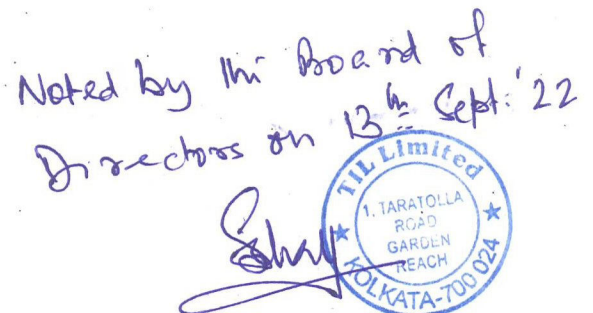 Noted by the Board of
Directors on 13th Sept. '22
TIL Limited
1, TARATOLLA
ROAD
GARDEN
REACH
KOLKATA-700 024